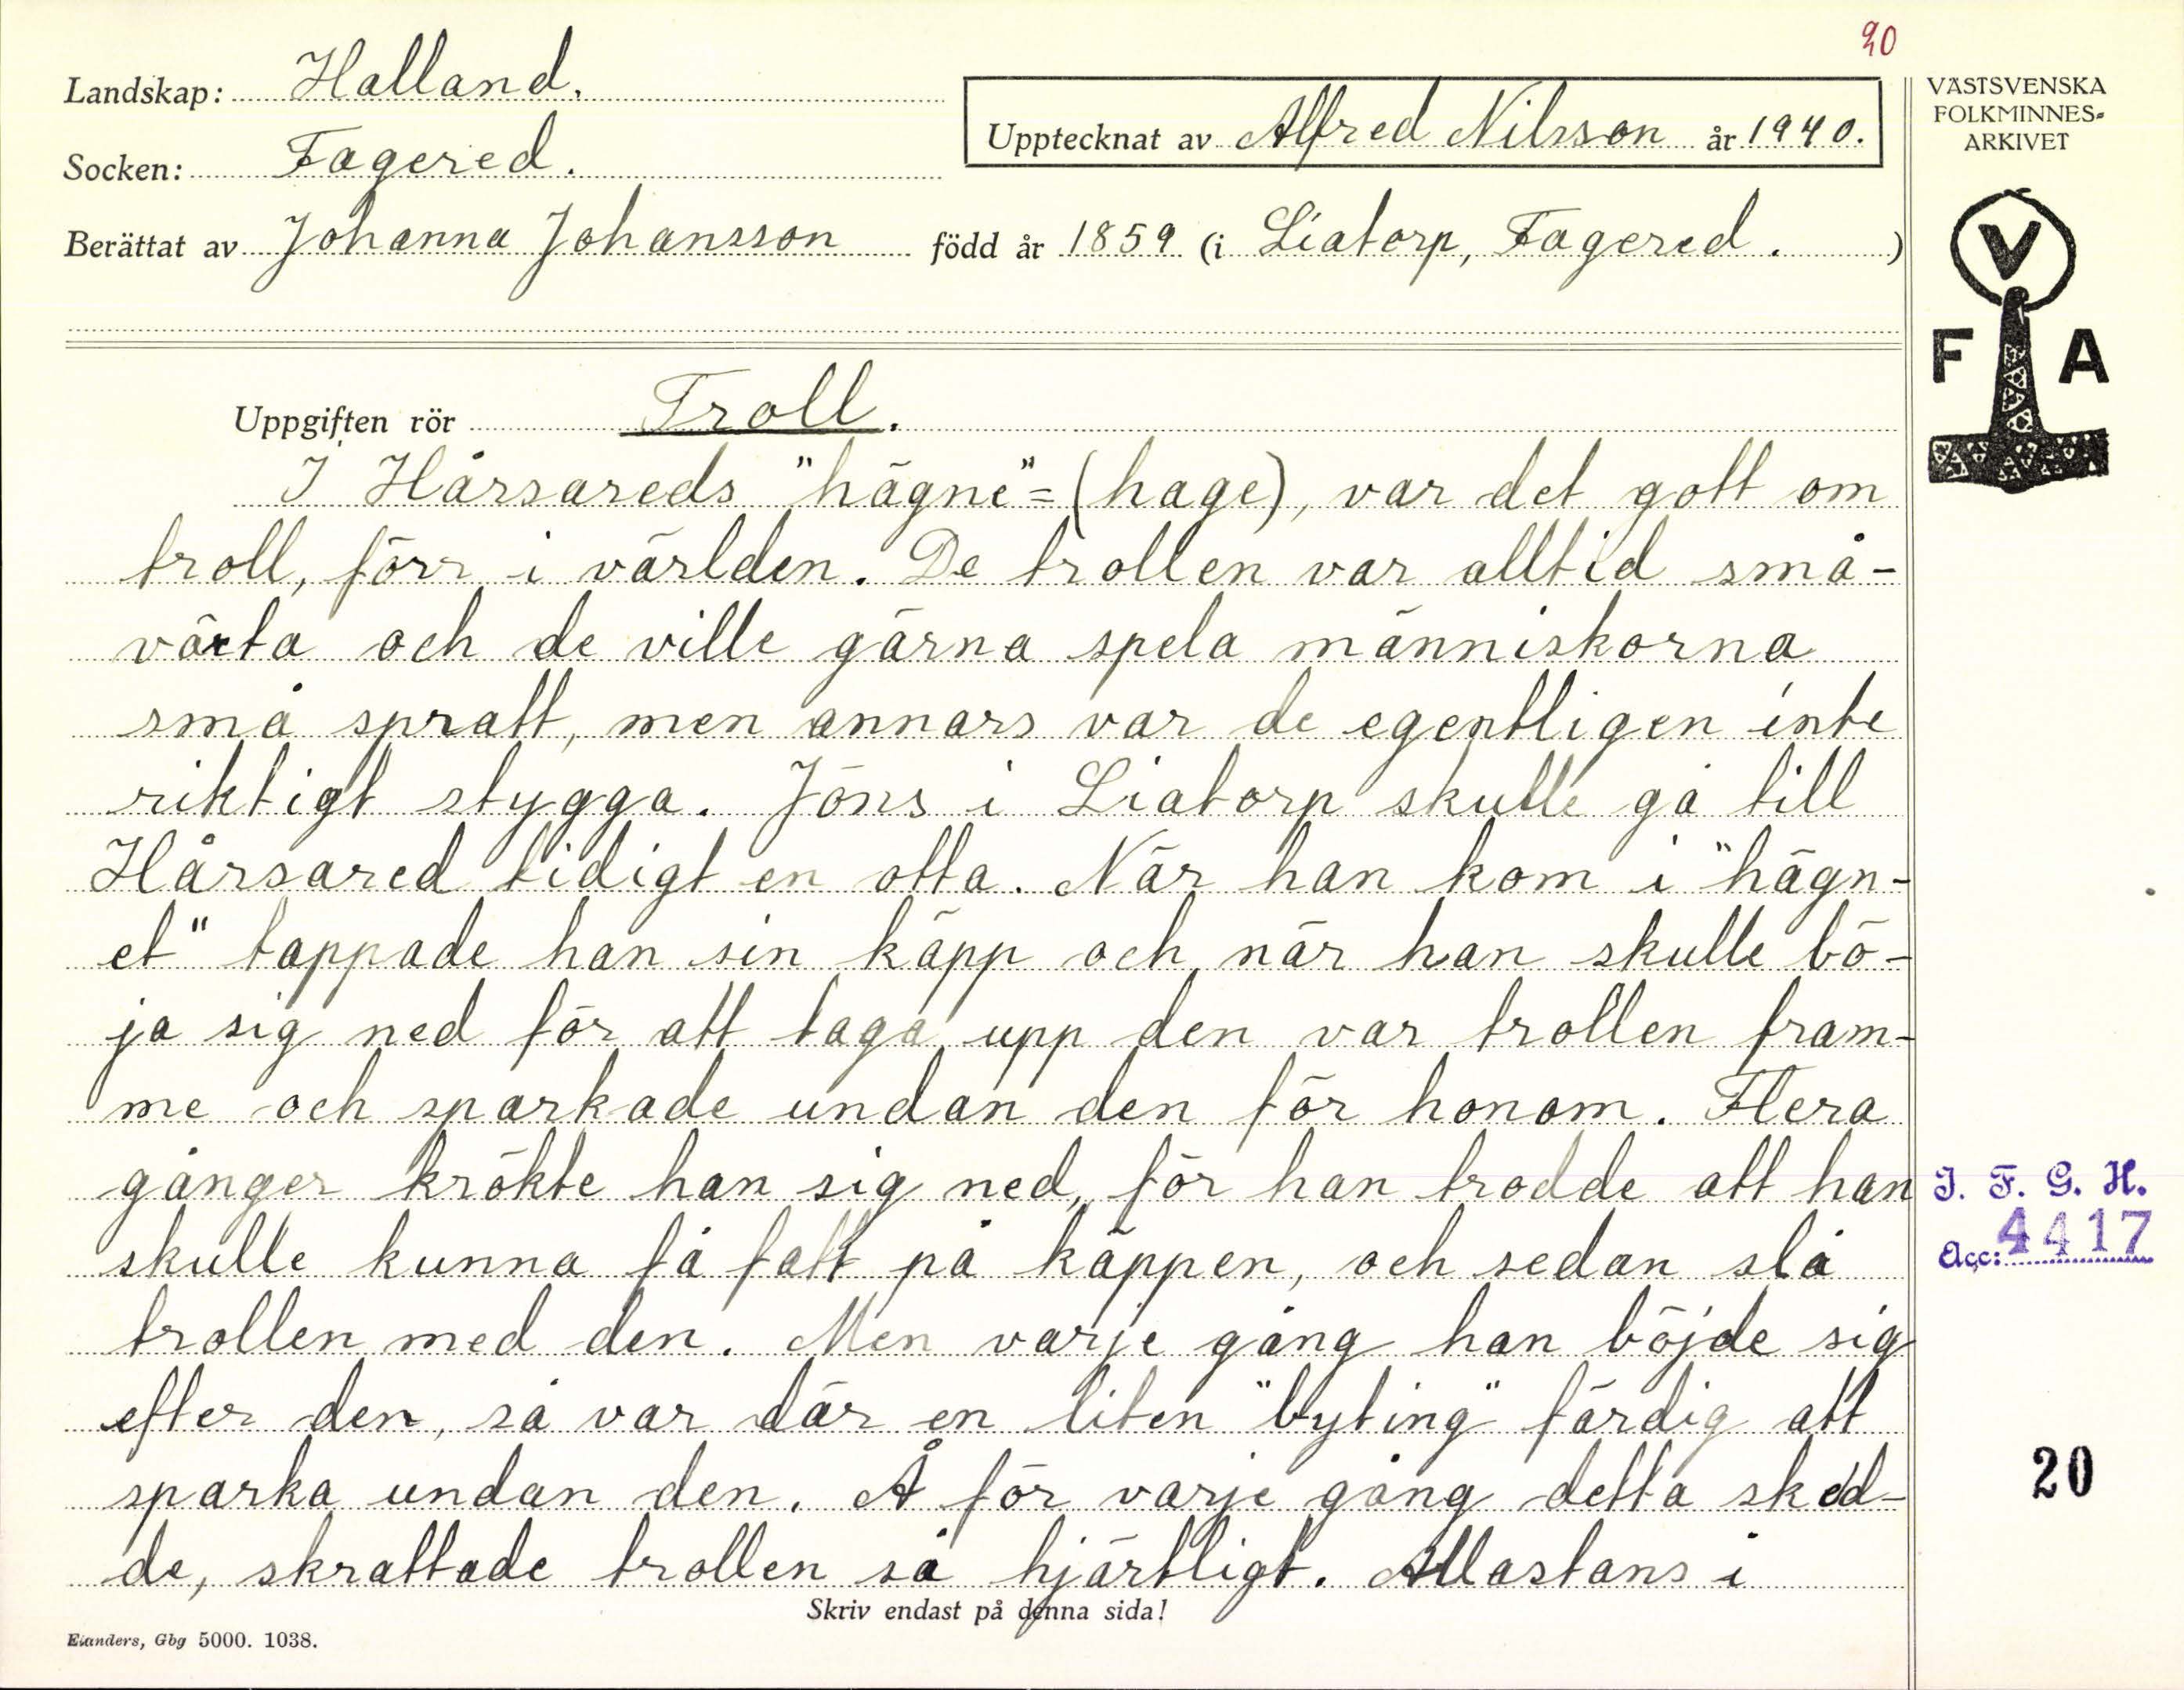 20
Landskap: Halland.
Upptecknat av Alfred Nilsson år 1940.
VÄSTSVENSKA
FOLKMINNES-
ARKIVET
Socken: Fagered.
Berättat av Johanna Johansson född år 1859 (i Liatorp, Fagered. )
V
F A
Uppgiften rör Troll.
I Hårsareds "hägne"= (hage), var det gott om
troll, förr i världen. De trollen var alltid små-
växta och de ville gärna spela människorna
små spratt, men annars var de egentligen inte
riktigt stygga. Jöns i Liatorp skulle gå till
Hårsared tidigt en otta. När han kom i "hägn-
et" tappade han sin käpp och när han skulle bö-
ja sig ned för att taga upp den var trollen fram-
me och sparkade undan den för honom. Flera
gånger krökte han sig ned, för han trodde att han
skulle kunna få fatt på käppen, och sedan slå
trollen med den. Men varje gång han böjde sig
efter den, så var där en liten "byting" färdig att
sparka undan den. Å för varje gång detta sked-
de, skrattade trollen så hjärtligt. Allastans i
I. F. G. H.
Acc: 4417
20
Skriv endast på denna sida!
Elanders, Gbg 5000. 1038.